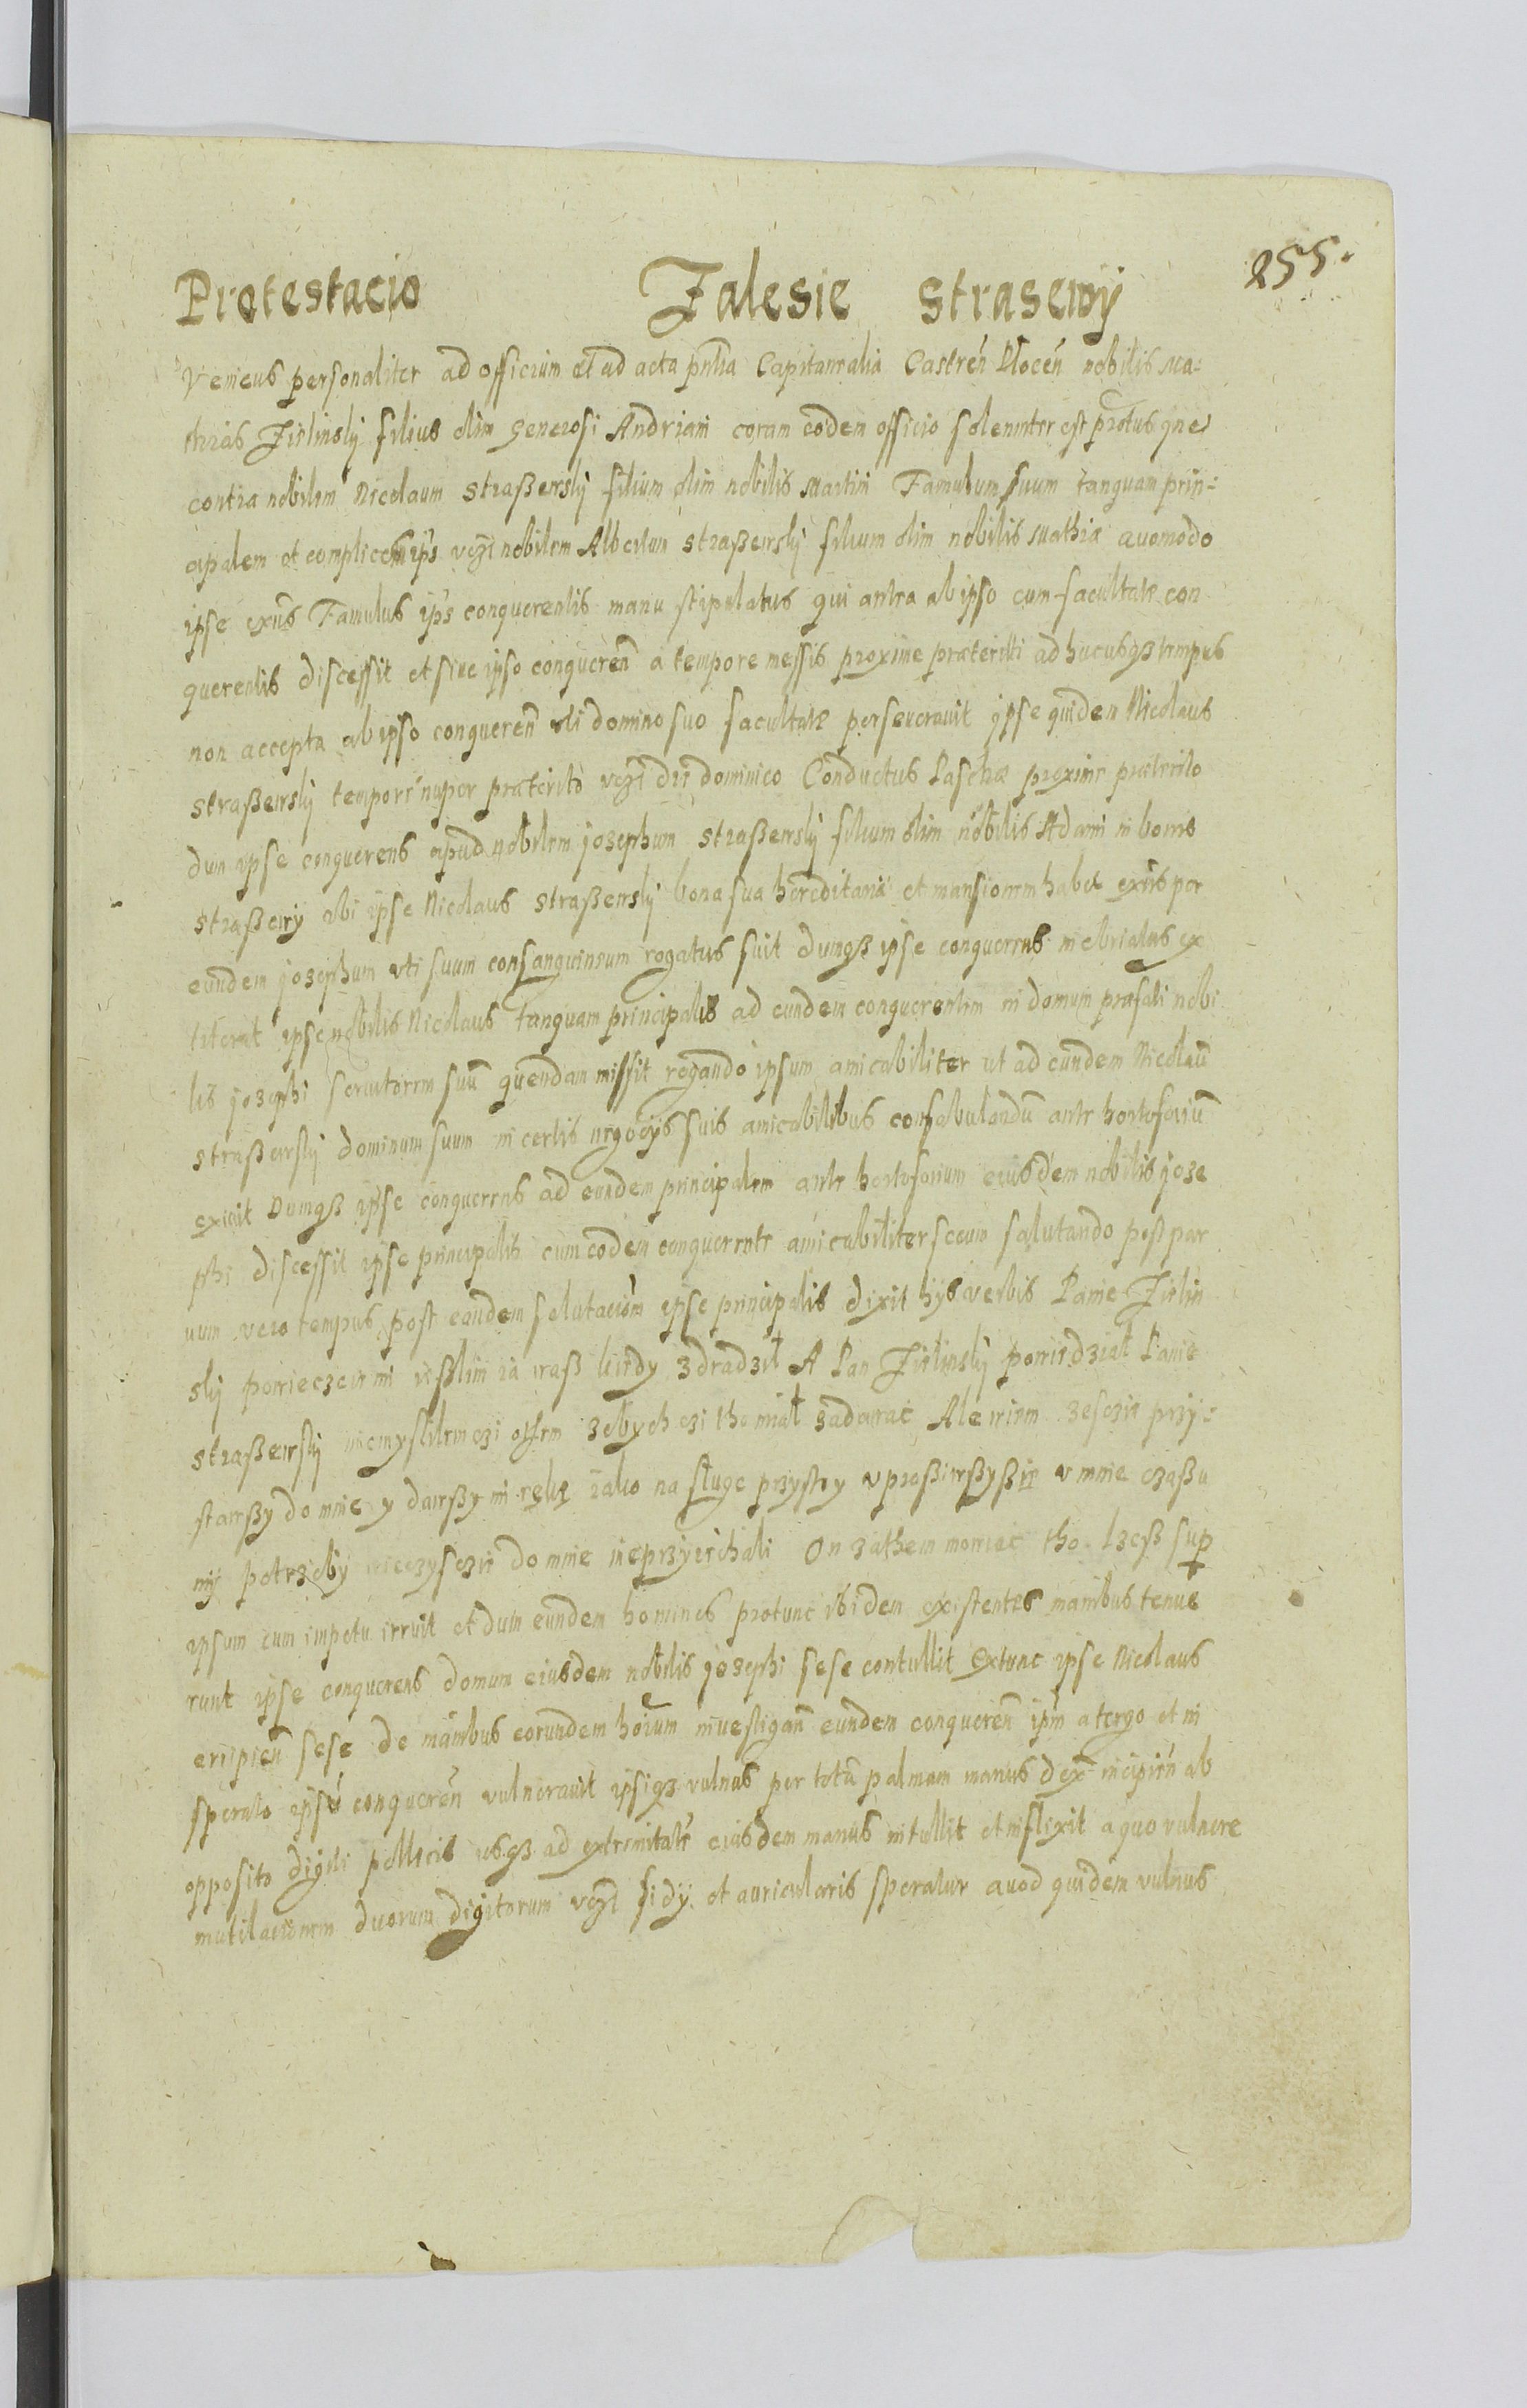 255.
Protestacio Zalesie Strasewy
Veniens personaliter ad officium et ad acta pñtia Capitanealia Castreñ Ploceñ nobilis Ma-
thias Zielinsky filius olim generosi Andriani coram eodem officio solenniter est protus
contra nobilem Nicolaum Straßewsky filium olim nobilis Martini Famulum suum tanquam prin-
cipalem et complicem ip̃s vcz̃t nobilem Albertum Straßewsky filium olim nobilis Mathiæ Quomodo
ipse exñs Famulus ip̃s conquerentis manu stipulatus qui antea ab ipso cum facultate con
querentis discessit et sine ipso conquereñ a tempore messis proxime præteriti ad hucusqz tempus
non accepta ab ipso conquereñ uti domino suo facultate perseveravit ipse quidem Nicolaus
Straßewsky tempore nuper præterito vcz̃t die dominico Conductus Paschæ proxime præterito
dum ipse conquerens apud nobilem Josephum Straßewsky filium olim nobilis Adami in bonis
Straßewy ubi ipse Nicolaus Straßewsky bona sua hereditaria et mansionem habet exñs per
eundem Josephum uti suum consanguineum rogatus fuit dumqz ipse conquerens inebriatus ex
titerat ipse nobilis Nicolaus tanquam principalis ad eundem conquerentem in domum præfati nobi
lis Josephi servitorem suũ quendam missit rogando ipsum amicabiliter ut ad eundem Nicolaũ
Straßewsky dominum suum in certis negocys suis amicabilibus confabulandũ ante hostoforiũ
exiuit Dumqz ipse conquerens ad eundem principalem ante hostoforium eiusdem nobilis Jose
phi discessit ipse principalis cum eodem conquerente amicabiliter secum salutando post par
uum vero tempus post eandem salutacioñm ipse principalis dixit hys verbis Panie Zielin
sky powieczcie mi ieslim ia waß kiedy zdradził A Pan Zielinsky powiedział Panie
Straßewsky niemyslilem czi othem zebych czi tho miał zadawac Ale wiem zesczie przy-
stawßy do mnie y dawßy mi rękę iako na sługe przystoy vprosiwßyßie v mnie czaßu
mÿ potrzeby do mnie nieprzyiechali On zathem mowiac tho lzeß sup
ipsum cum impetu irruit et dum eundem homines protunc ibidem existentes manibus tenue
runt ipse conquerens domum eiusdem nobilis Josephi sese contullit Extunc ipse Nicolaus
eripieñ sese de manibus eorundem hoĩum investigañ eundem conquereñ ip̃m a tergo et in
sperato ipsũ conquereñ vulneravit ipsiqz vulnus per totũ palmam manus dex̃ incipieñ ab
opposito digiti pollicis usqz ad extremitatẽ eiusdem manus intullit et inflixit a quo vulnere
mutilacionem duorum digitorum vcz̃t fidy et auricularis speratur Quod quidem vulnus